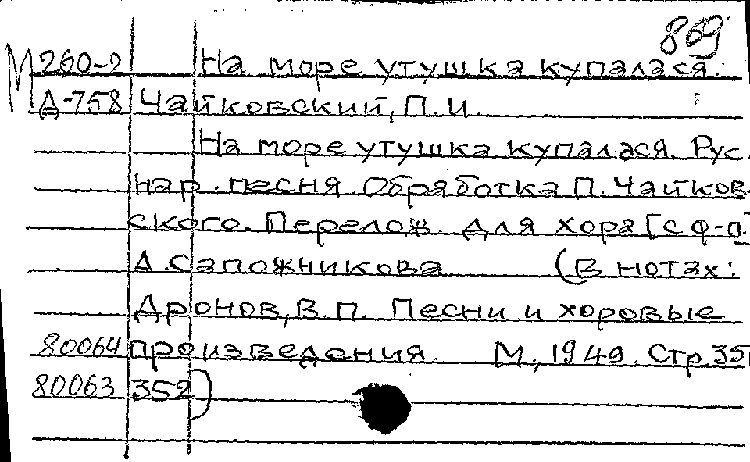 869
М 260-2 На море утушка купалася.
Д-758 Чайковский, П.И.
На море утушка купалася. Рус.
нар. песня Обработка П. Чайков-
ского. Перелож. для хора [с ф-п.]
А. Сапожникова (В нотах:
Дронов, В.П. Песни и хоровые
80064 произведения. М., 1949. Стр. 351
80063 352)